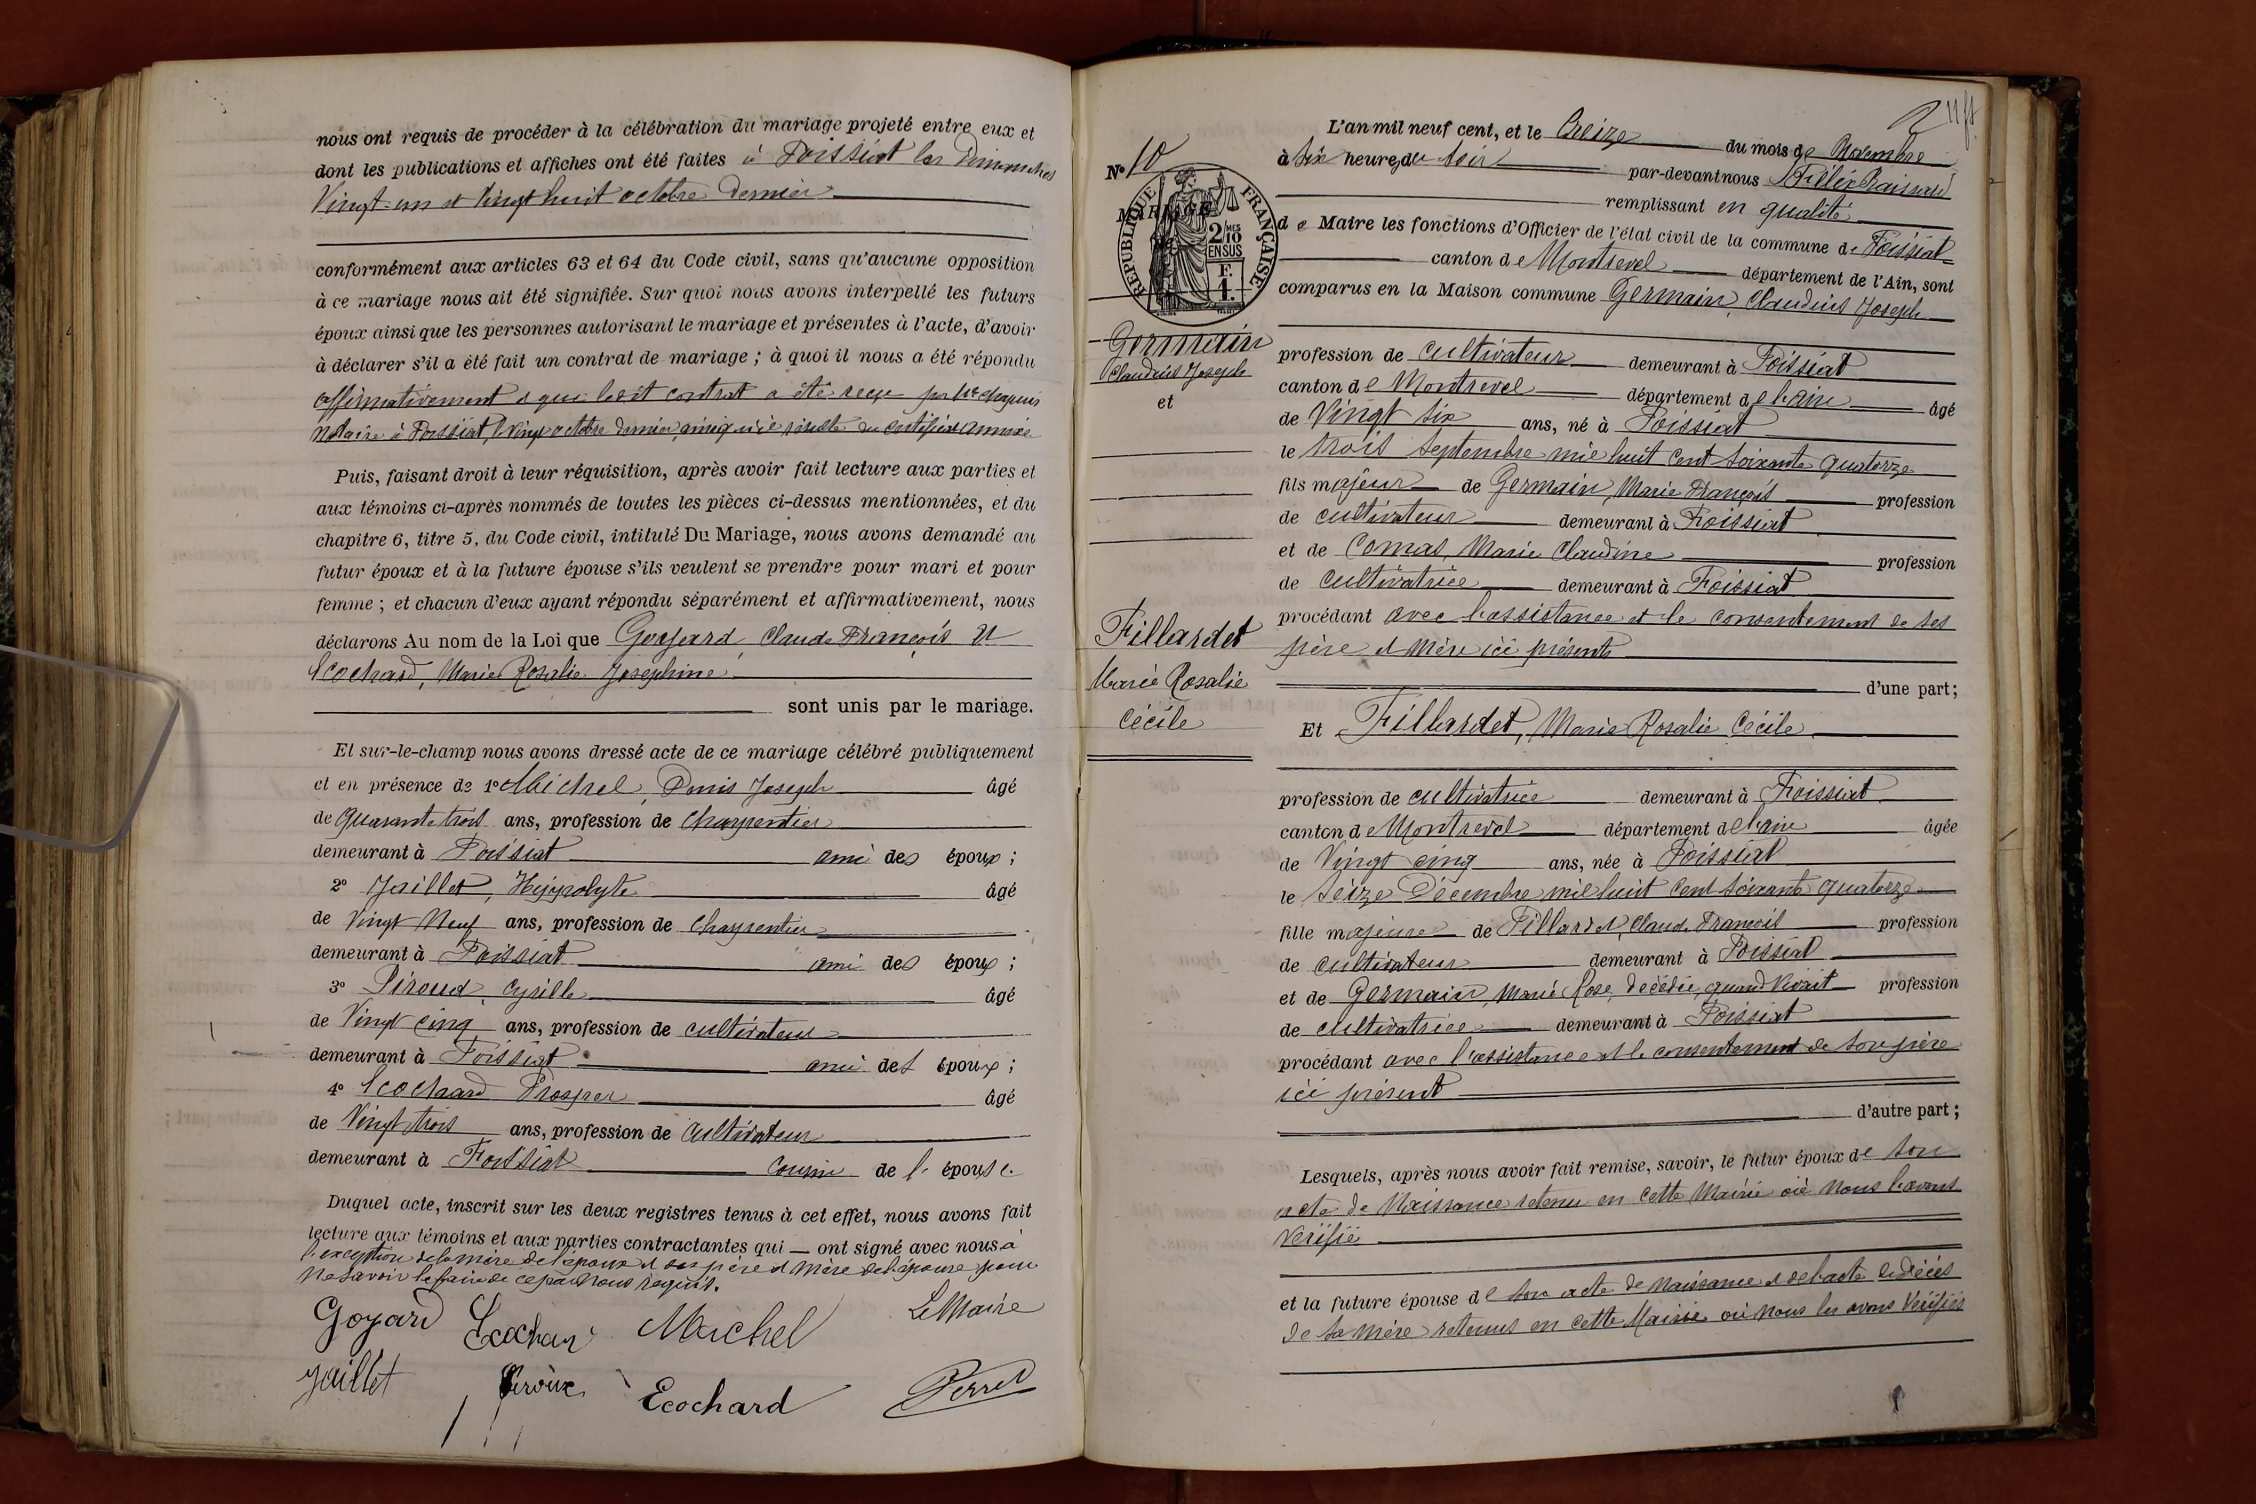 nous ont requis de procéder à la célébration du mariage projeté entre eux et
dont les publications et affiches ont été faites à Foissiat les Dimanches
Vingt-un et Vingt huit octobre dernier
conformément aux articles 63 et 64 du Code civil, sans qu'aucune opposition
à ce mariage nous ait été signifiée. Sur quoi nous avons interpellé les futurs
époux ainsi que les personnes autorisant le mariage et présentes à l'acte, d'avoir
à déclarer s'il a été fait un contrat de mariage ; à quoi il nous a été répondu
affirmativement et que ledit contrat a été reçu par Me
notaire à Foissiat, le vingt octobre dernier, ainsi qu'il résulte du certificat annexé
Puis, faisant droit à leur réquisition, après avoir fait lecture aux parties et
aux témoins ci-après nommés de toutes les pièces ci-dessus mentionnées, et du
chapitre 6, titre 5, du Code civil, intitulé Du Mariage, nous avons demandé au
futur époux et à la future épouse s'ils veulent se prendre pour mari et pour
femme ; et chacun d'eux ayant répondu séparément et affirmativement, nous
déclarons Au nom de la Loi que Goyard, Claude François Et
Ecochard, Marie Rosalie Josephine
sont unis par le mariage.
Et sur-le-champ nous avons dressé acte de ce mariage célébré publiquement
et en présence de 1° Michel, Denis Joseph âgé
de Quarante trois ans, profession de Charpentier
demeurant à Foissiat ami des époux ;
2° Jaillet, Hyppolyte âgé
de Vingt Neuf ans, profession de Charpentier
demeurant à Foissiat ami des époux ;
3° Piroud, Cyrille âgé
de Vingt cinq ans, profession de cultivateur
demeurant à Foissiat ami des époux ;
4° Ecochard Prosper âgé
de Vingt trois ans, profession de Cultivateur
demeurant à Foissiat Cousin de l'épouse
Duquel acte, inscrit sur les deux registres tenus à cet effet, nous avons fait
lecture aux témoins et aux parties contractantes qui — ont signé avec nous à
l'exception de la mère de l'époux et des père et mère de l'épouse pour
ne savoir le faire de ce par Nous requis.
Goyard Ecochard Michel Le Maire
Jaillet Ecochard Perret
11
N° 10
MARIAGE
RÉPUBLIQUE FRANÇAISE
2 MES
10
EN SUS
F.
1.
Germain
Claudius Joseph
et
Fillardet
Marie Rosalie
Cécile
L'an mil neuf cent, et le Treize du mois de Novembre
à Six heures du Soir par-devant nous Félix
remplissant en qualité
de Maire les fonctions d'Officier de l'état civil de la commune de Foissiat
canton de Montrevel département de l'Ain, sont
comparus en la Maison commune Germain, Claudius Joseph
profession de cultivateur demeurant à Foissiat
canton de Montrevel département de l'ain âgé
de Vingt Six ans, né à Foissiat
le trois Septembre mil huit cent soixante quatorze
fils majeur de Germain, Marie François profession
de cultivateur demeurant à Foissiat
et de Comas, Marie Claudine profession
de cultivatrice demeurant à Foissiat
procédant avec l'assistance et le consentement de ses
père et Mère ici présents
d'une part ;
Et Fillardet, Marie Rosalie Cécile
profession de cultivatrice demeurant à Foissiat
canton de Montrevel département de l'ain âgée
de Vingt cinq ans, née à Foissiat
le Seize Décembre mil huit cent soixante quatorze
fille majeure de Fillardet, Claude François profession
de cultivateur demeurant à Foissiat
et de Germain, Marie Rose, décédée, quand vivait profession
de cultivatrice demeurant à Foissiat
procédant avec l'assistance et le consentement de son père
ici présent
d'autre part ;
Lesquels, après nous avoir fait remise, savoir, le futur époux de son
acte de Naissance retenu en cette Mairie où Nous l'avons
Vérifié
et la future épouse de son acte de Naissance et de l'acte de décès
de sa mère retenus en cette Mairie où nous les avons Vérifiés